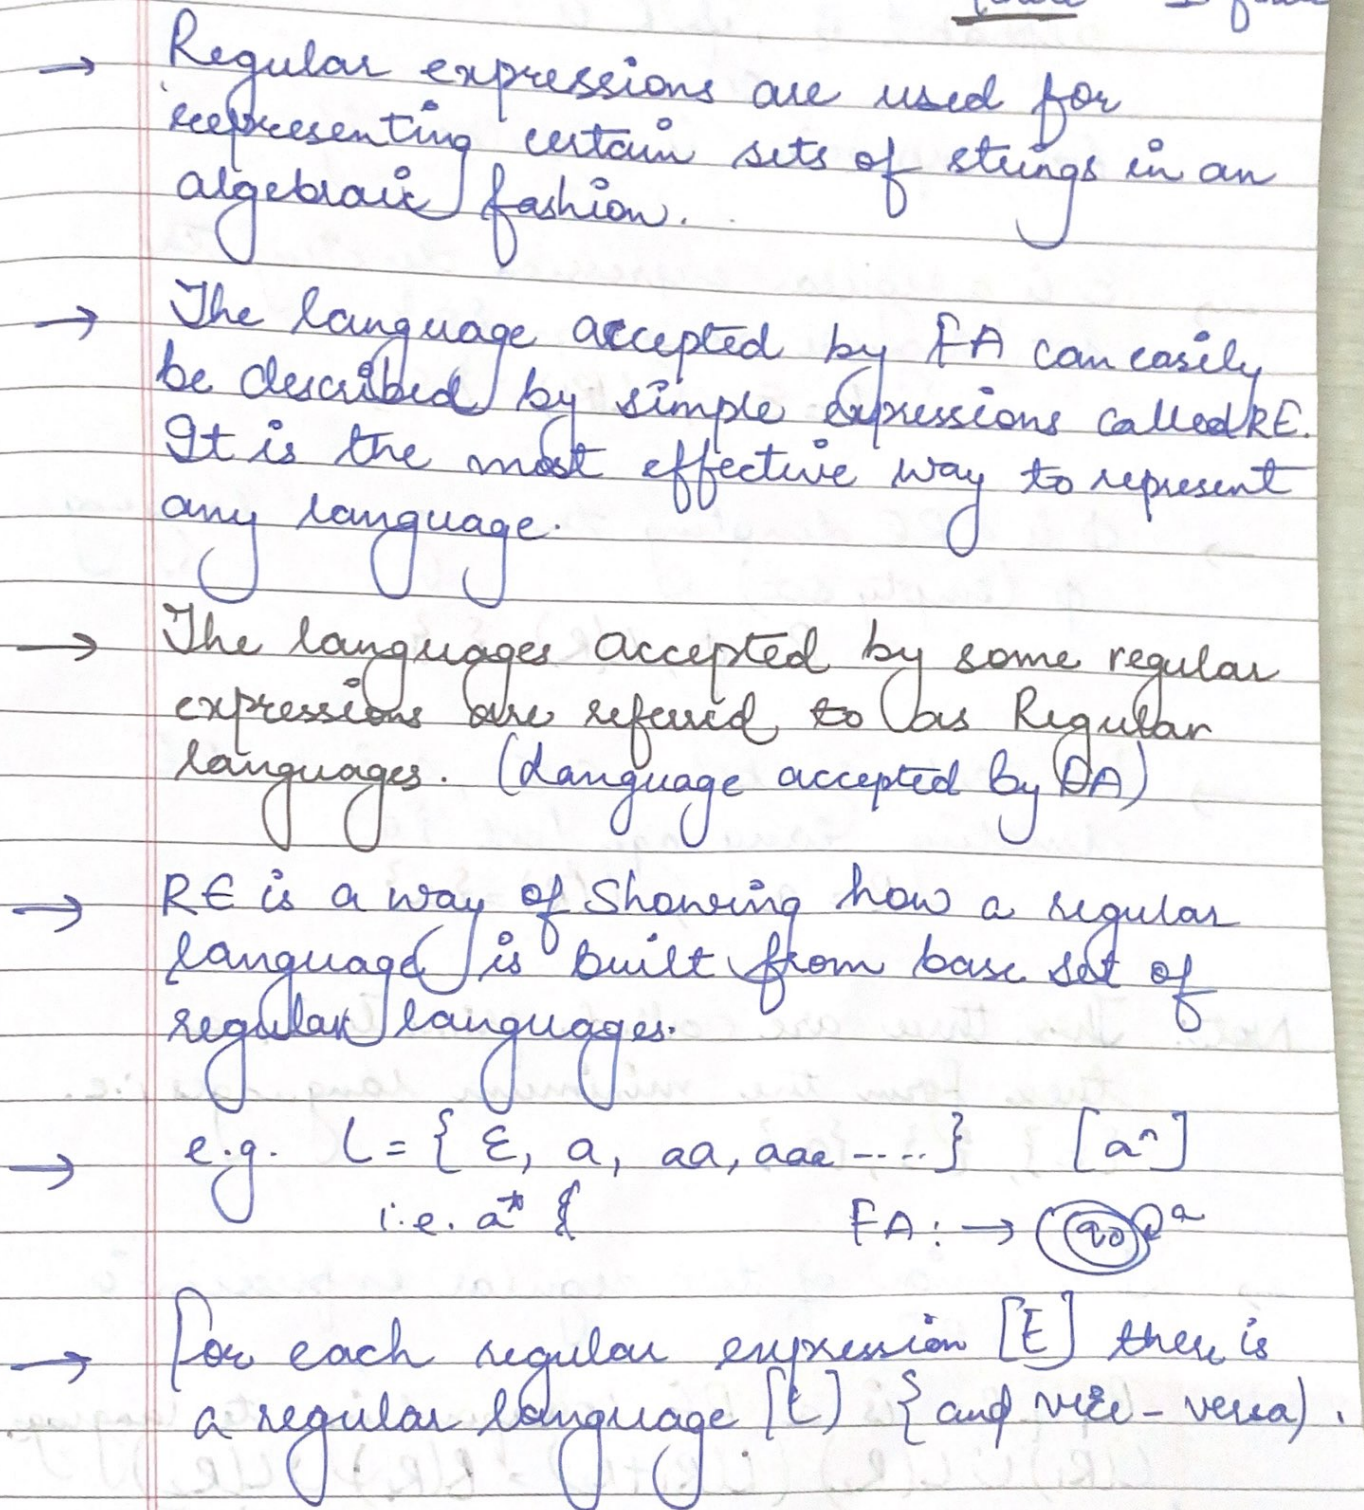 → Regular expressions are used for
representing certain sets of strings in an
algebraic fashion.
→ The language accepted by FA can easily
be described by simple expressions called RE.
It is the most effective way to represent
any language.
→ The languages accepted by some regular
expressions are referred to as Regular
languages. (Language accepted by FA)
→ RE is a way of Showing how a regular
language is built from base set of
regular languages.
→ e.g. L = { ε, a, aa, aaa -....} [aⁿ]
i.e. a* {
FA: → q₀ a
→ For each regular expression [E] there is
a regular language [L] { and vice-versa) .